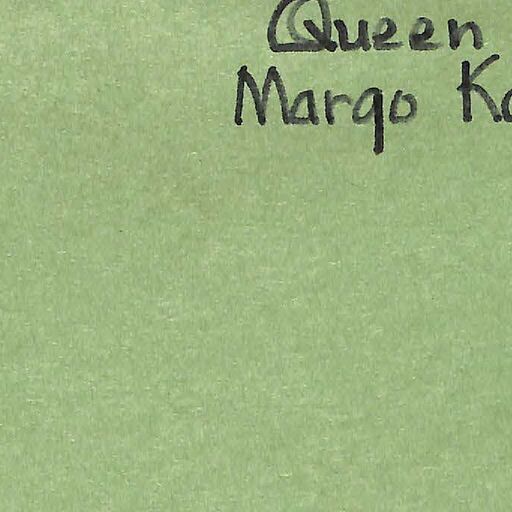 Queen
Margo